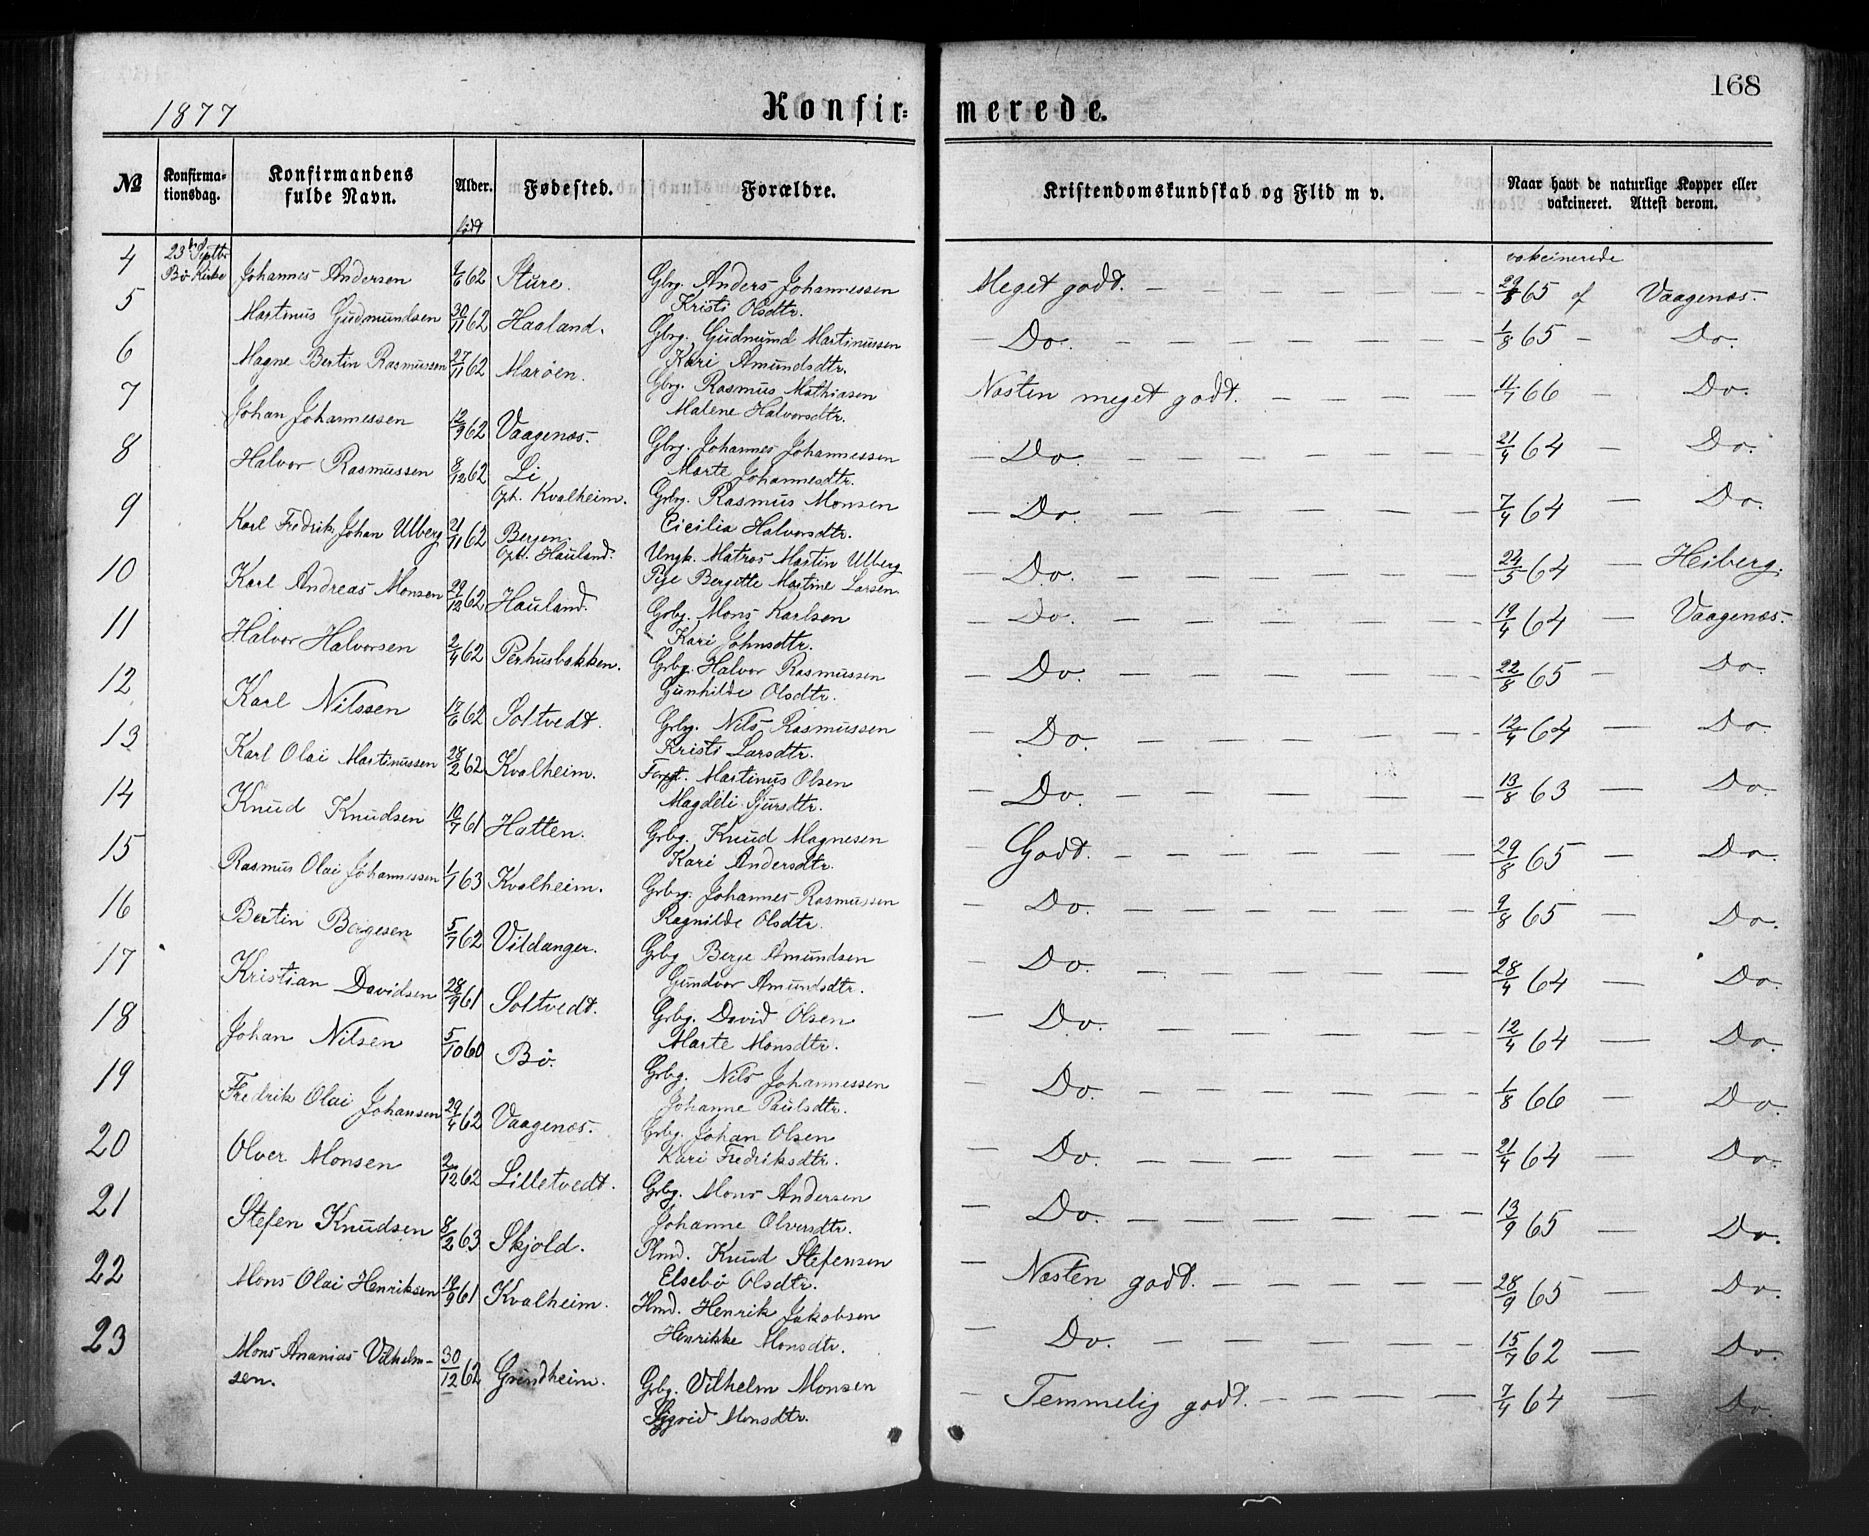 168
1877 Konfir= merede.
№ Konfirma-tionsdag. Konfirmandens fulde Navn. Alder. Fødested. Forældre. Kristendomskundskab og Flid m v. Naar havt de naturlige Kopper eller vakcineret. Attest derom.
født
4 23de Septbr Bø Kirke Johannes Andersen 62 Sture. Gbrg. Anders Johannessen Kristi Olsdtr. Meget godt. — vakcinerede 29/8 65 af Vaagenæs.
5 Martinus Gudmundsen 30/11 62 Haaland. Gbrg. Gudmund Martinussen Kari Amundsdtr. — Do. — 1/8 65 - Do.
6 Magne Bertin Rasmussen 27/11 62 Marøen. Gbrg. Rasmus Mathiasen Malene Halvorsdtr. Næsten meget godt. — 66 - Do.
7 Johan Johannessen 12/9 62 Vaagenæs. Gbrg. Johannes Johannessen Marte Johannesdtr. — Do. — 21/4 64 — Do.
8 Halvor Rasmussen 8/12 62 Li Oph. Kvalheim. Grbrg. Rasmus Monsen Cicilia Halvorsdtr. — Do. — 7/4 64 — Do.
9 Karl Fredrik Johan Ulberg 21/11 62 Bergen. Oph. Hauland. Ungk. Matros Martin Ulberg Pige Bergitte Martine Larsen — Do. — 24/5 64 — Heiberg.
10 Karl Andreas Monsen 29/12 62 Hauland. Grbg. Mons Karlsen Kari Johnsdtr. — Do. — 19/4 64 — Vaagenæs.
11 Halvor Halvorsen 2/4 62 Perhusbakken. Grbg. Halvor Rasmussen Gunhilde Olsdtr. — Do. — 22/8 65 — Do.
12 Karl Nilssen 62 Soltvedt. Grbg. Nils Rasmussen Kristi Larsdtr. — Do. — 12/4 64 — Do.
13 Karl Olai Martinussen 28/2 62 Kvalheim. Martinus Olsen Magdeli Sjursdtr. — Do. — 13/8 63 — Do.
14 Knud Knudsen 10/7 61 Hatten. Grbg. Knud Magnesen Kari Andersdtr. Godt. — 29/8 65 — Do.
15 Rasmus Olai Johannessen 1/1 63 Kvalheim. Grbrg. Johannes Rasmussen Ragnilde Olsdtr. — Do. — 9/8 65 — Do.
16 Bertin Børgesen 5/7 62 Vildanger. Grbg Berge Amundsen Gundvor Amundsdtr. — Do. — 28/4 64 — Do.
17 Kristian Davidsen 28/9 61 Soltvedt. Grbg. David Olsen Marte Monsdtr. — Do. — 12/4 64 — Do.
18 Johan Nilsen 5/10 60 Bø. Grbg. Nils Johannessen Johanne Paulsdtr. — Do. — 1/8 66 — Do.
19 Fredrik Olai Johansen 29/4 62 Vaagenæs. Grbg. Johan Olsen Kari Fredriksdtr. — Do. — 21/4 64 — Do.
20 Olver Monsen 2/12 62 Lilletvedt. Grbg. Mons Andersen Johanne Olversdtr. — Do. — 13/9 65 — Do.
21 Stefen Knudsen 8/2 63 Skjold. Plmd. Knud Stefensen Elsebø Olsdtr. — Næsten godt. — 28/9 65 — Do.
22 Mons Olai Henriksen 19/9 61 Kvalheim. Hmd. Henrik Jakobsen Henrikke Monsdtr. — Do. — 15/7 62 — Do.
23 Mons Ananias Vilhelm-sen. 30/12 62 Grindheim. Grbg. Vilhelm Monsen Sigrid Monsdtr. — Temmelig godt. — 7/4 64 — Do.